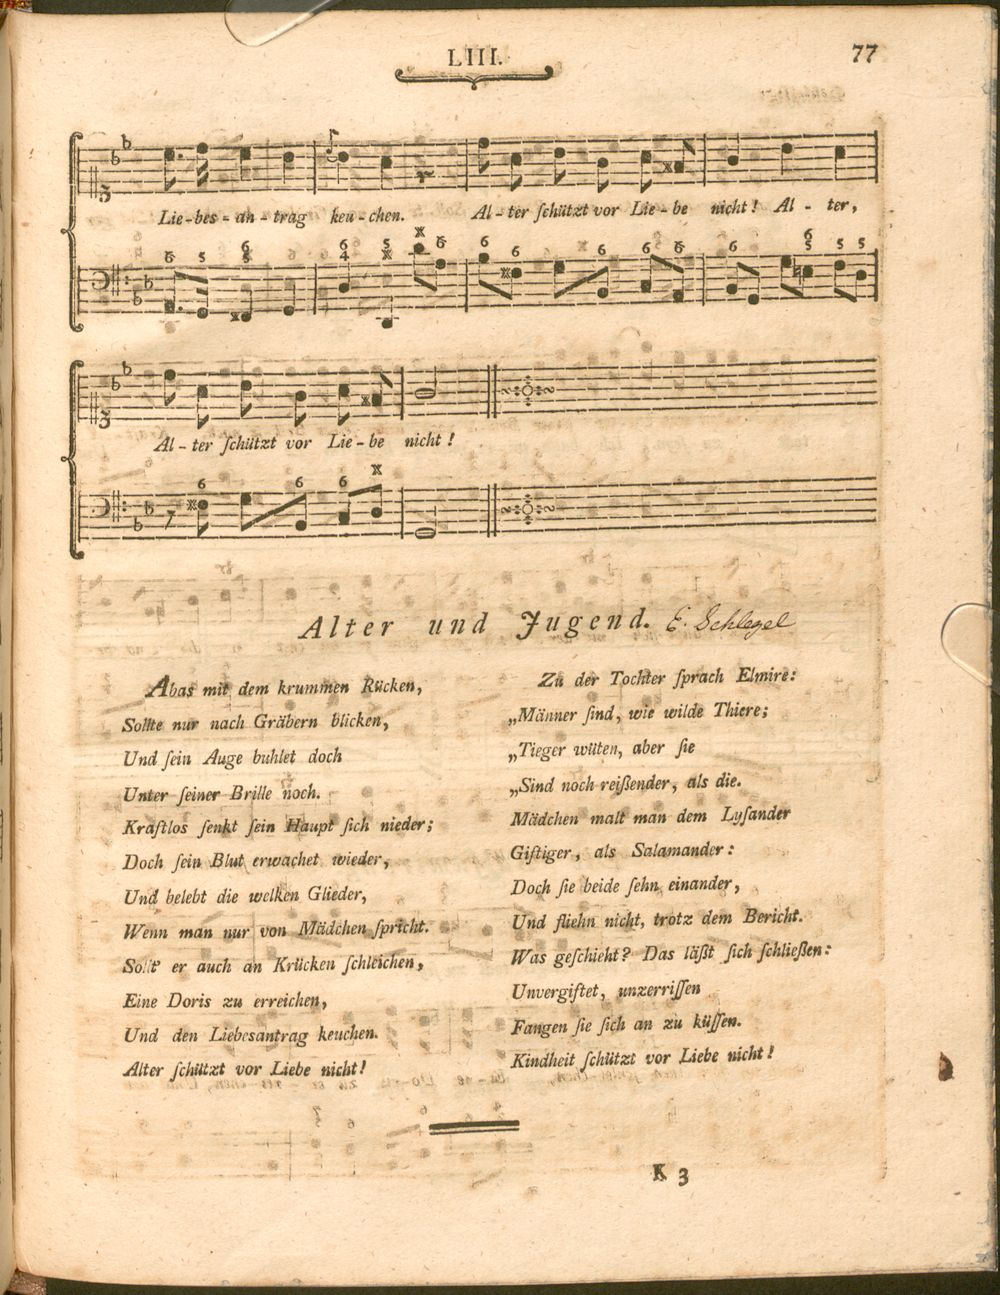 LIII.
77
Lie-bes-an-trag keu-chen. Al-ter ſchützt vor Lie-be nicht! Al-ter,
Al-ter ſchützt vor Lie-be nicht!
Alter und Jugend. E. Schlegel
Abas mit dem krummen Rücken,
Sollte nur nach Gräbern blicken,
Und ſein Auge buhlet doch
Unter ſeiner Brille noch.
Kraftlos ſenkt ſein Haupt ſich nieder;
Doch ſein Blut erwachet wieder,
Und belebt die welken Glieder,
Wenn man nur von Mädchen ſpricht.
Sollt' er auch an Krücken ſchleichen,
Eine Doris zu erreichen,
Und den Liebesantrag keuchen.
Alter ſchützt vor Liebe nicht!
Zu der Tochter ſprach Elmire:
„Männer ſind, wie wilde Thiere;
„Tieger wüten, aber ſie
„Sind noch reißender, als die.
Mädchen malt man dem Lyſander
Giftiger, als Salamander:
Doch ſie beide ſehn einander,
Und fliehn nicht, trotz dem Bericht.
Was geſchieht? Das läßt ſich ſchließen:
Unvergiftet, unzerriſſen
Fangen ſie ſich an zu küſſen.
Kindheit ſchützt vor Liebe nicht!
K 3